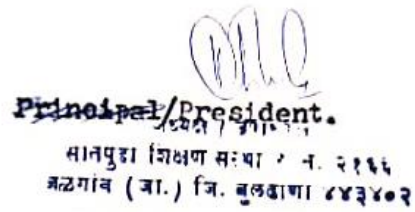 Principal/President.
सातपुडा शिक्षण संस्था र. नं. २१६६
जळगांव (जा.) जि. बुलढाणा ४४३४०२